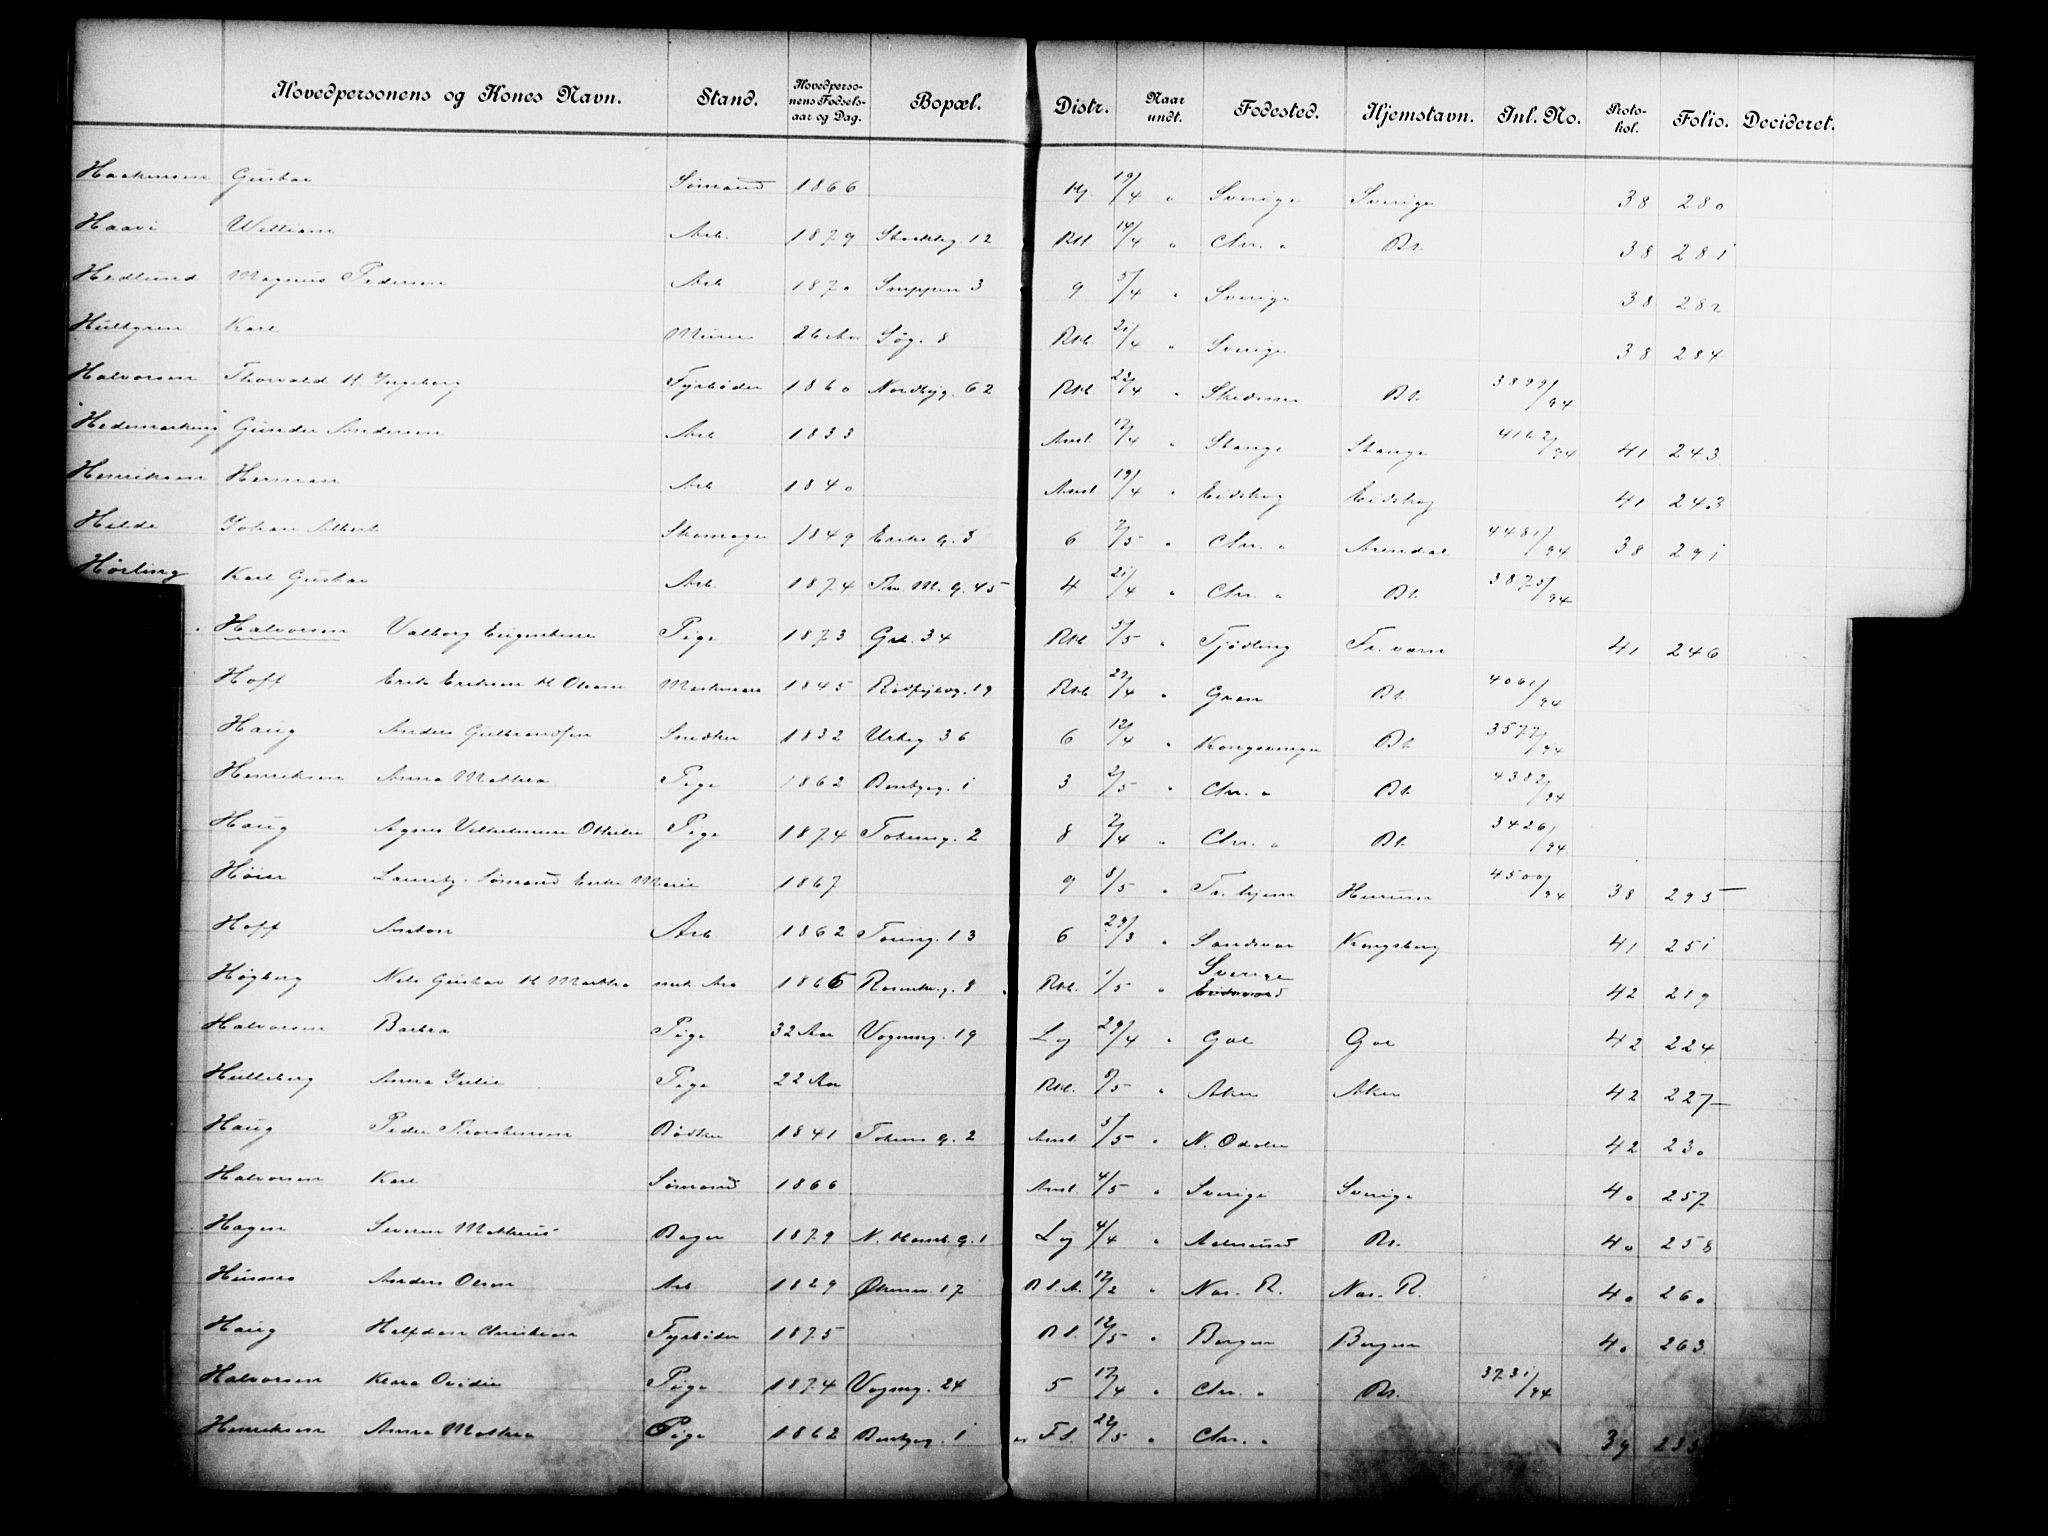 Hovedpersonens og Kones Navn. Stand. Hovedpersonens Fødselsaar og Dag. Bopæl. Distr. Naar undt. Fødested. Hjemstavn. Inl. No. Protokol. Folio. Decideret.
Gustav Sømand 1866 19/4 " Sverige Sverige 38 280
Haavi William Arb. 1879 12 14/4 " Chr. " Bt. 38 281
Hedlund Magnus Pedersen Arb 1870 Snippen 3 9 5/4 " Sverige 38 282
Hultgren Karl Murer 26 Aar Søg. 8 21/4 " Sverige 38 284
Halvorsen Thorvald H Ingeborg Fyrbøder 1860 Nordbyg. 62 23/4 " Skedsmo Bt. 3899/94
Hedemarking Gunder Andersen Arb 1833 Anst. 12/4 " Stange Stange 4162/94 41 243
Henriksen Herman Arb 1840 Anst 19/4 " Eidskog Eidskog 41 243
Hilde Johan Albert Skomager 1849 Eriks g. 3 6 2/5 " Chr. " Arendal 4481/94 38 291
Høiling Karl Gustav Arb. 1874 Thv. M. g. 45 4 21/4 " Chr. " Bt. 3873/94
Halvorsen Valborg Pige 1873 Grl. 34 3/5 " Tjødling Fr. værn 41 246
Hoff Erik Eriksen H Oleane 1845 19 22/4 " Gran Bt. 4061/94
Haug Anders Gulbrandsen Snedker 1832 Urteg 36 6 12/4 " Kongsvinger Bt. 3577/94
Henriksen Anna Mathea Pige 1862 1 3 2/5 " Chr. " Bt. 4382/94
Haug Agnes Vilhelmine Othilie Pige 1874 Tøieng. 2 8 2/4 " Chr. " Bt. 3426/94
Høier Lauritz. Sømand Enke Marie 1867 9 8/5 " Tr. hjem 4500/94 38 295
Hoff Anton Arb 1862 Tøieng. 13 6 29/3 " Sandsvær Kongsberg 41 251
Høgberg Nils Gustav H Martha 1866 8 1/5 " Sverige 42 219
Halvorsen Barbra Pige 32 Aar Vognmg. 19 Lg 29/4 " Gol Gol 42 224
Hulleberg Anna Julie Pige 22 Aar 8/5 " Aker Aker 42 227
Haug Peder Thorstensen Bødker 1841 g. 2 Anst 5/5 " N. Odalen 42 230
Halvorsen Karl Sømand 1866 Anst. 4/5 " Sverige Sverige 40 257
Hagen Severin Mathius Bager 1879 g. 1 Lg 4/4 " Bt. 40 258
Anders Olsen Arb. 1829 17 12/2 " Nes. R. Nes. R. 40 260
Haug Halfdan Christian Fyrbøder 1875 12/5 " Bergen Bergen 40 263
Halvorsen Klara Ovidia Pige 1874 Vognmg. 24 5 12/4 " Chr. " Bt. 3731/94
Henriksen Anna Mathea Pige 1862 1 22/5 " Chr. " 39